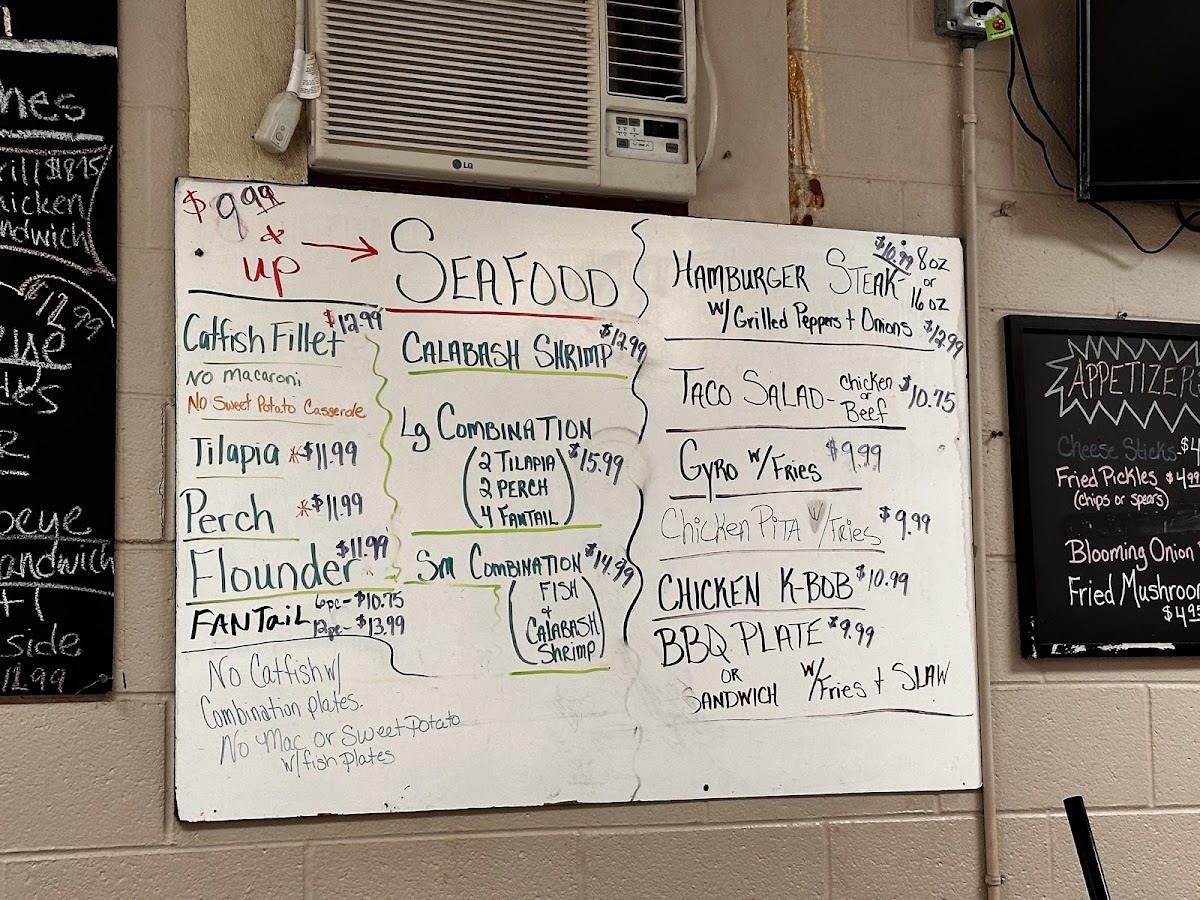 hes
rill $8.75
hicken
andwich
12.99
R
peye
andwich
side
12.99
LG
$9.99
&
up →
SEAFOOD
Catfish Fillet $12.99
No Macaroni
No Sweet Potato Casserole
Tilapia *$11.99
Perch *$11.99
Flounder $11.99
FANTAIL 6pc-$10.75
12pc-$13.99
No Catfish w/
Combination plates.
No Mac or Sweet Potato
w/fish plates
CALABASH SHRIMP $12.99
Lg COMBINATION
$15.99
(2 TILAPIA
2 PERCH
4 FANTAIL)
Sm COMBINATION $14.99
(FISH
+
CALABASH
Shrimp)
HAMBURGER STEAK- $10.99 8oz
or
16oz
w/Grilled Peppers + Onions $12.99
TACO SALAD- chicken or Beef $10.75
GYRO w/Fries $9.99
Chicken Pita w/Fries $9.99
CHICKEN K-BOB $10.99
BBQ PLATE $9.99
OR
SANDWICH w/Fries + SLAW
APPETIZER
Cheese Sticks-$4
Fried Pickles $4.99
(chips or spears)
Blooming Onion
Fried Mushroo
$4.95